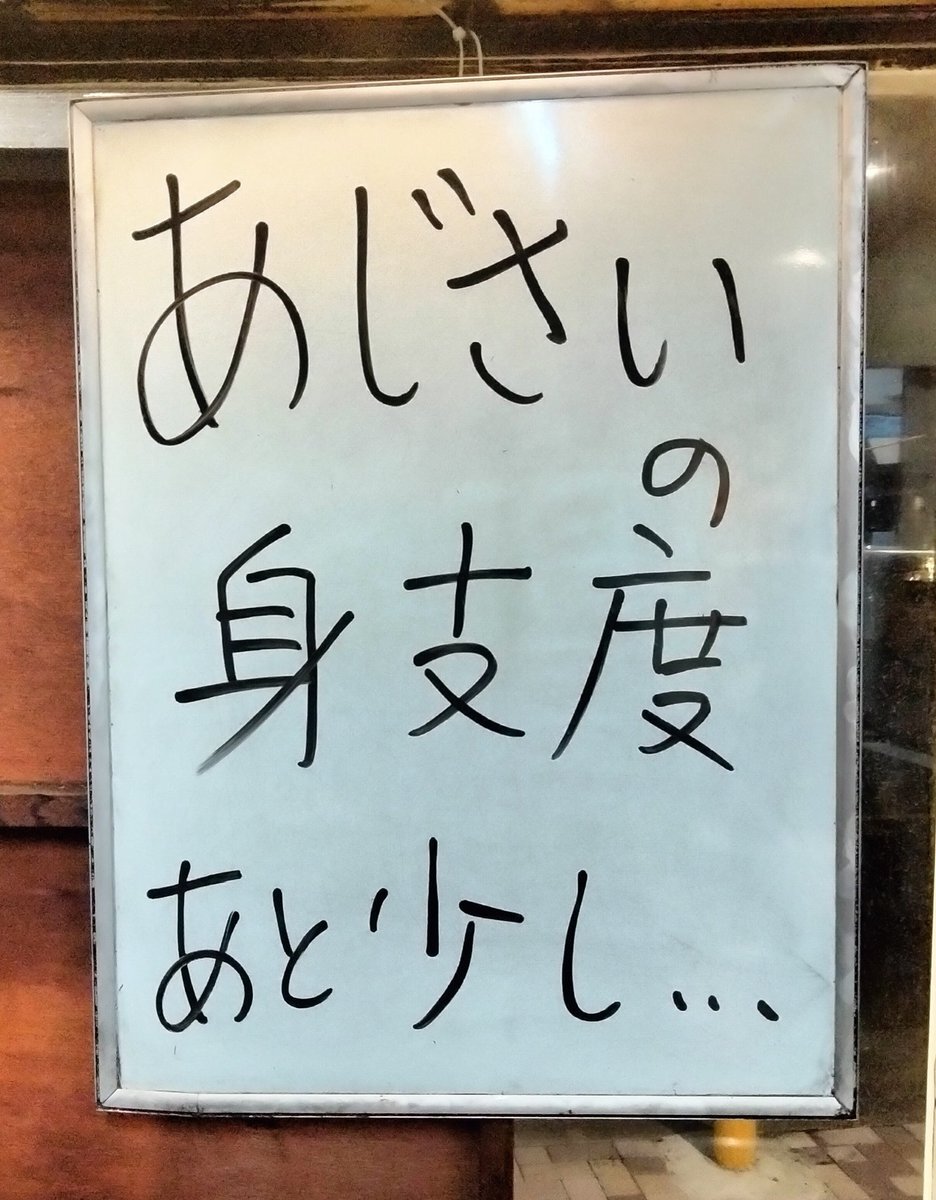 あじさい
の
身支度
あと少し...